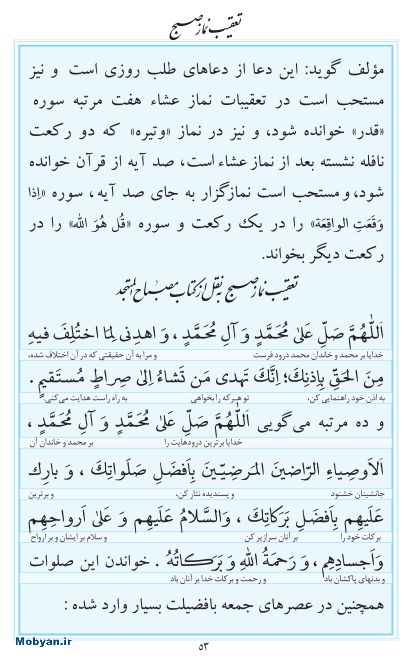 تعقیب نماز صبح
مؤلف گوید: این دعا از دعاهای طلب روزی است و نیز
مستحب است در تعقیبات نماز عشاء هفت مرتبه سوره
«قدر» خوانده شود، و نیز در نماز «وتیره» که دو رکعت
نافله نشسته بعد از نماز عشاء است، صد آیه از قرآن خوانده
شود، و مستحب است نمازگزار به جای صد آیه، سوره «اِذا
وَقَعَتِ الواقِعَة» را در یک رکعت و سوره «قُل هُوَ الله» را در
رکعت دیگر بخواند.
تعقیب نماز صبح به نقل از کتاب مصباح المتهجد
اَللّٰهُمَّ صَلِّ عَلىٰ مُحَمَّدٍ وَ آلِ مُحَمَّدٍ، وَ اهدِنى لِمَا اختُلِفَ فيهِ
خدایا بر محمد و خاندان محمد درود فرست و مرا به آن حقیقتی که در آن اختلاف شده،
مِنَ الحَقِّ بِاِذنِكَ؛ اِنَّكَ تَهدى مَن تَشاءُ اِلىٰ صِراطٍ مُستَقيمٍ.
به اذن خود راهنمایی کن، تو هر که را بخواهی به راه راست هدایت می‌کنی
و ده مرتبه می‌گویی اَللّٰهُمَّ صَلِّ عَلىٰ مُحَمَّدٍ وَ آلِ مُحَمَّدٍ،
خدایا برترین درودهایت را بر محمد و خاندان آن
اَلاَوصِياءِ الرّاضينَ المَرضِيّينَ بِاَفضَلِ صَلَواتِكَ، وَ بارِك
جانشینان خشنود و پسندیده نثار کن، و برترین
عَلَيهِم بِاَفضَلِ بَرَكاتِكَ، وَ السَّلامُ عَلَيهِم وَ عَلىٰ اَرواحِهِم
برکات خود را بر آنان سرازیر کن و سلام بر ایشان و بر ارواح
وَ اَجسادِهِم، وَ رَحمَةُ اللهِ وَ بَرَكاتُهُ. خواندن این صلوات
و بدنهای پاکشان باد و رحمت و برکات خدا بر آنان باد
همچنین در عصرهای جمعه بافضیلت بسیار وارد شده :
Mobyan.ir
۵۳